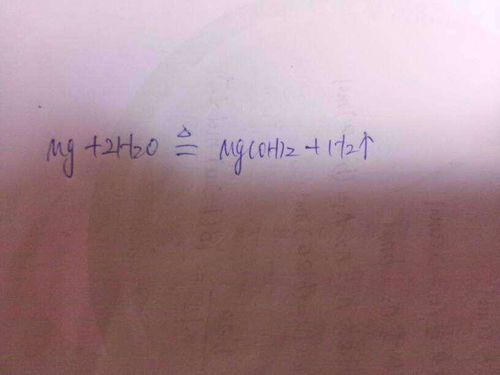 Mg + 2H2O ≜ Mg(OH)2 + H2↑